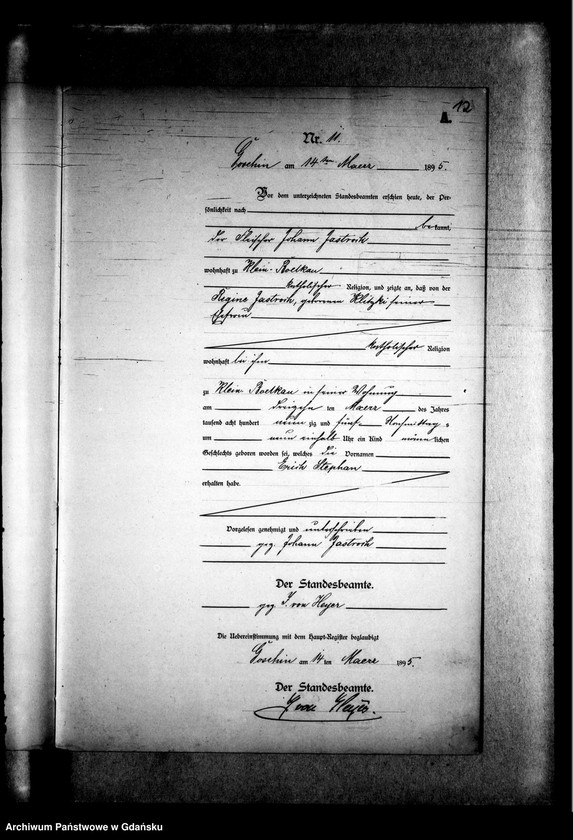 12
A.
Nr. 11.
Goschin am 14ten Maerz 1895.
Vor dem unterzeichneten Standesbeamten erschien heute, der Per-
sönlichkeit nach
bekannt,
der Fleischer Johann Jastroch
wohnhaft zu Klein Roelkau
katholischer Religion, und zeigte an, daß von der
Regine Jastroch, geborenen Klitzki seiner
Ehefrau
katholischer Religion
wohnhaft bei ihm
zu Klein Roelkau in seiner Wohnung
am dreizehn ten Maerz des Jahres
tausend acht hundert neun zig und fünf Nachmittags
um neun einhalb Uhr ein Kind männlichen
Geschlechts geboren worden sei, welches die Vornamen
Erich Stephan
erhalten habe.
Vorgelesen genehmigt und unterschrieben
gez. Johann Jastroch
Der Standesbeamte.
gez. J. von Heyer
Die Uebereinstimmung mit dem Haupt-Register beglaubigt
Goschin am 14 ten Maerz 1895.
Der Standesbeamte.
J. von Heyer.
Archiwum Państwowe w Gdańsku